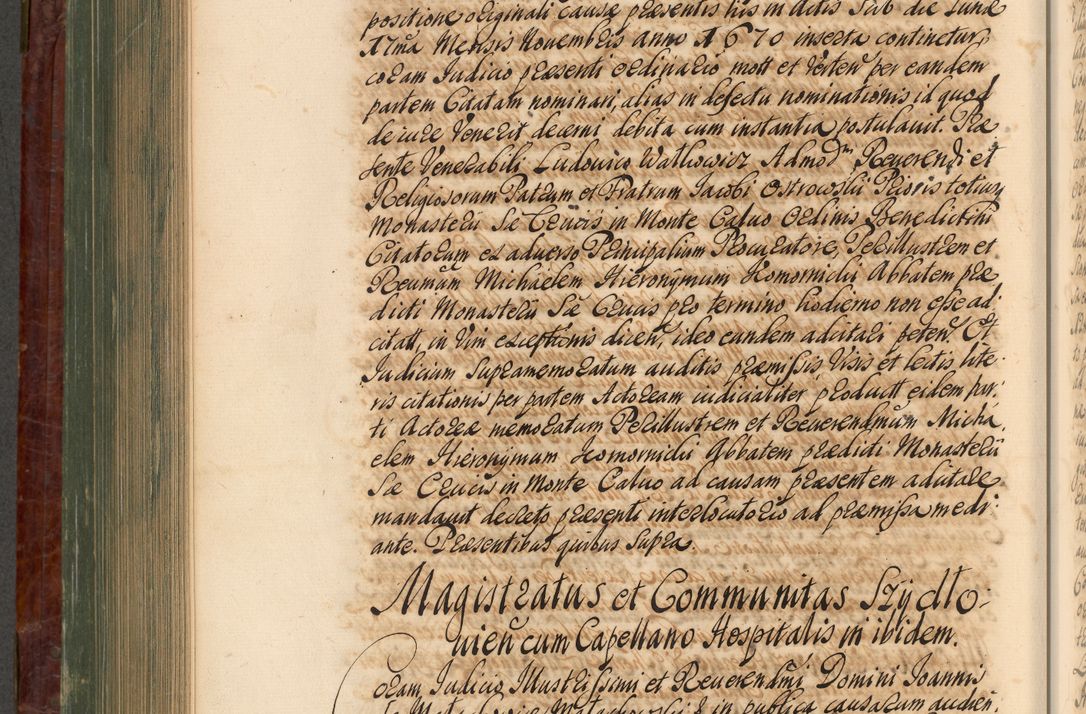 positione originali causæ præsentis his in Actis Sub die Lunæ
17ma Mensis Novembris anno 1670 inserta continetur,
coram Judicio præsenti ordinario mott et verten per eandem
partem Citatam nominari, alias in defectu nominationis id quod
de iure Venerit decerni debita cum instantia postulavit. Præ
sente Venerabili Ludovico Watkowicz Admod. Reverendi et
Religiosorum Patrum et Fratrum Jacobi Ostrowskii Prioris totius
Monasterii Sæ Crucis in Monte Calvo Ordinis Benedictini
Citatorum ex adverso Principalium Procuratore, Perillustrem et
Reumum Michaelem Hieronymum Komornicki Abbatem præ
dicti Monasterii Sæ Crucis pro termino hodierno non esse ad
citatt, in Vim exceptionis dicen, ideo eundem adcitari peten. Et
Judicium Supramemoratum auditis præmissis, Visis et lectis lite
ris citationis per partem Actoream iudicialiter productt eidem par:
ti Actoreæ memoratum Perillustrem et Reverendmum Micha
elem Hieronymum Komornicki Abbatem prædicti Monasterii
Sæ Crucis in Monte Calvo ad causam præsentem adcitare
mandavit decreto præsenti interlocutorio ad præmissa medi:
ante. Præsentibus quibus Supra.
Magistratus et Communitas Szydło:
vien cum Capellano Hospitalis in ibidem.
Coram Judicio Illustrissimi et Reverendmi Domini Joannis
in publica causarum audien: